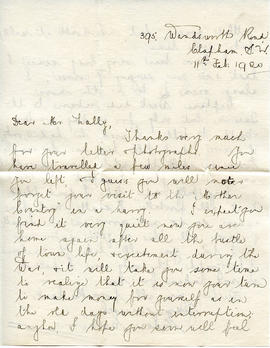 395, Wandsworth Road
Clapham S.W.
11th Feb. 1920
Dear Mr Lally,
Thanks very much
for your letter & photographs. You
have travelled a few miles since
you left, & I guess you will not
forget your visit to the Mother
Country in a hurry. I expect you
find it very quiet now you are
home again after all the bustle
of town life, & excitement during the
War, & it will take you some time
to realize that it is now your turn
to make money for yourself as in
the old days without interruption,
anyhow, I hope you soon will feel